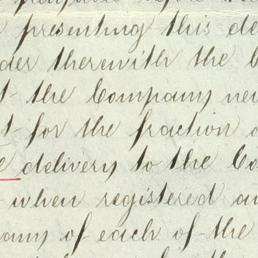 presenting this de
der therewith the C
t the Company ne
t for the fraction
e delivery to the Co
when registered an
any of each of the